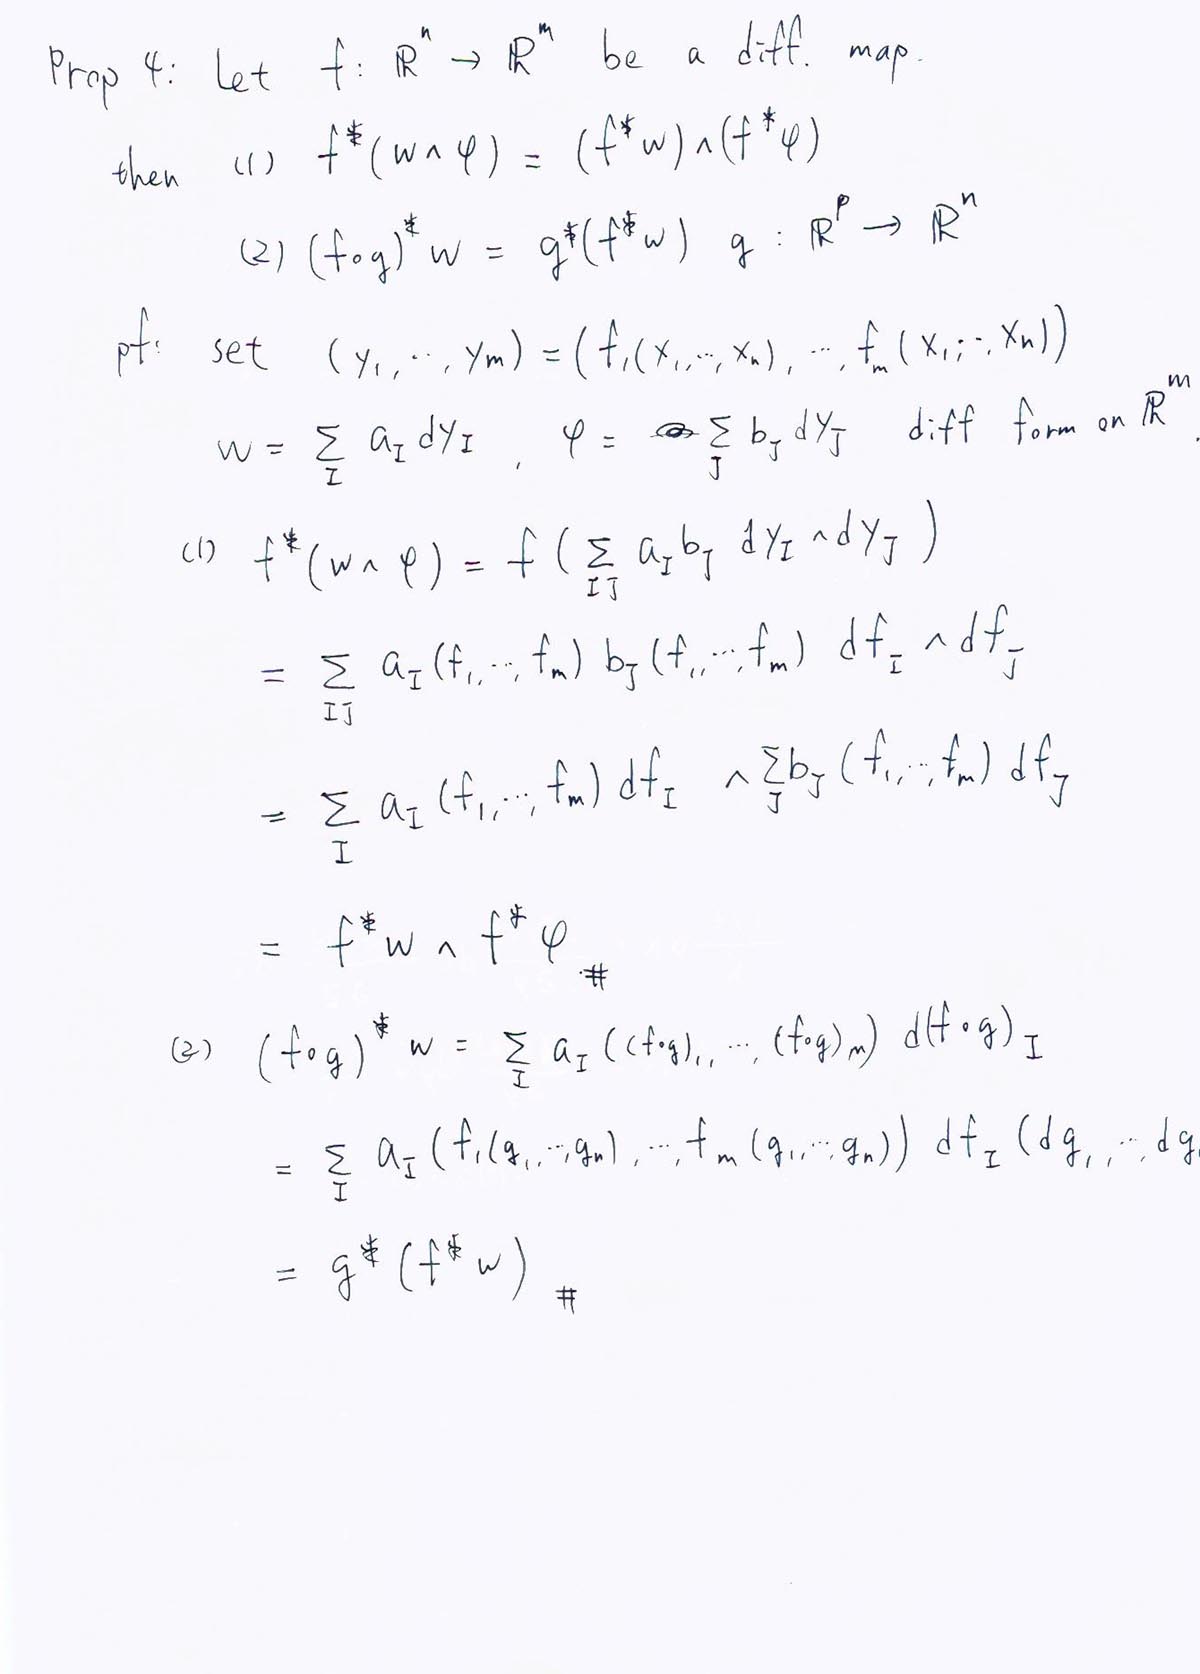 Prop 4: Let f: ℝⁿ → ℝᵐ be a diff. map.
then (1) f*(w∧φ) = (f*w)∧(f*φ)
(2) (f∘g)*w = g*(f*w) g : ℝᵖ → ℝⁿ
pf: set (y₁,⋯,yₘ) = (f₁(x₁,⋯,xₙ),⋯,fₘ(x₁,⋯,xₙ))
w = Σ_I a_I dy_I , φ = Σ_J b_J dy_J diff form on ℝᵐ.
(1) f*(w∧φ) = f(Σ_IJ a_I b_J dy_I ∧dy_J)
= Σ_IJ a_I(f₁,⋯,fₘ) b_J(f₁,⋯,fₘ) df_I ∧ df_J
= Σ_I a_I(f₁,⋯,fₘ) df_I ∧ Σ_J b_J(f₁,⋯,fₘ) df_J
= f*w ∧ f*φ #
(2) (f∘g)*w = Σ_I a_I((f∘g)₁,⋯,(f∘g)ₘ) d(f∘g)_I
= Σ_I a_I(f₁(g₁,⋯,gₙ),⋯,fₘ(g₁,⋯,gₙ)) df_I(dg₁,⋯,dg
= g*(f*w) #